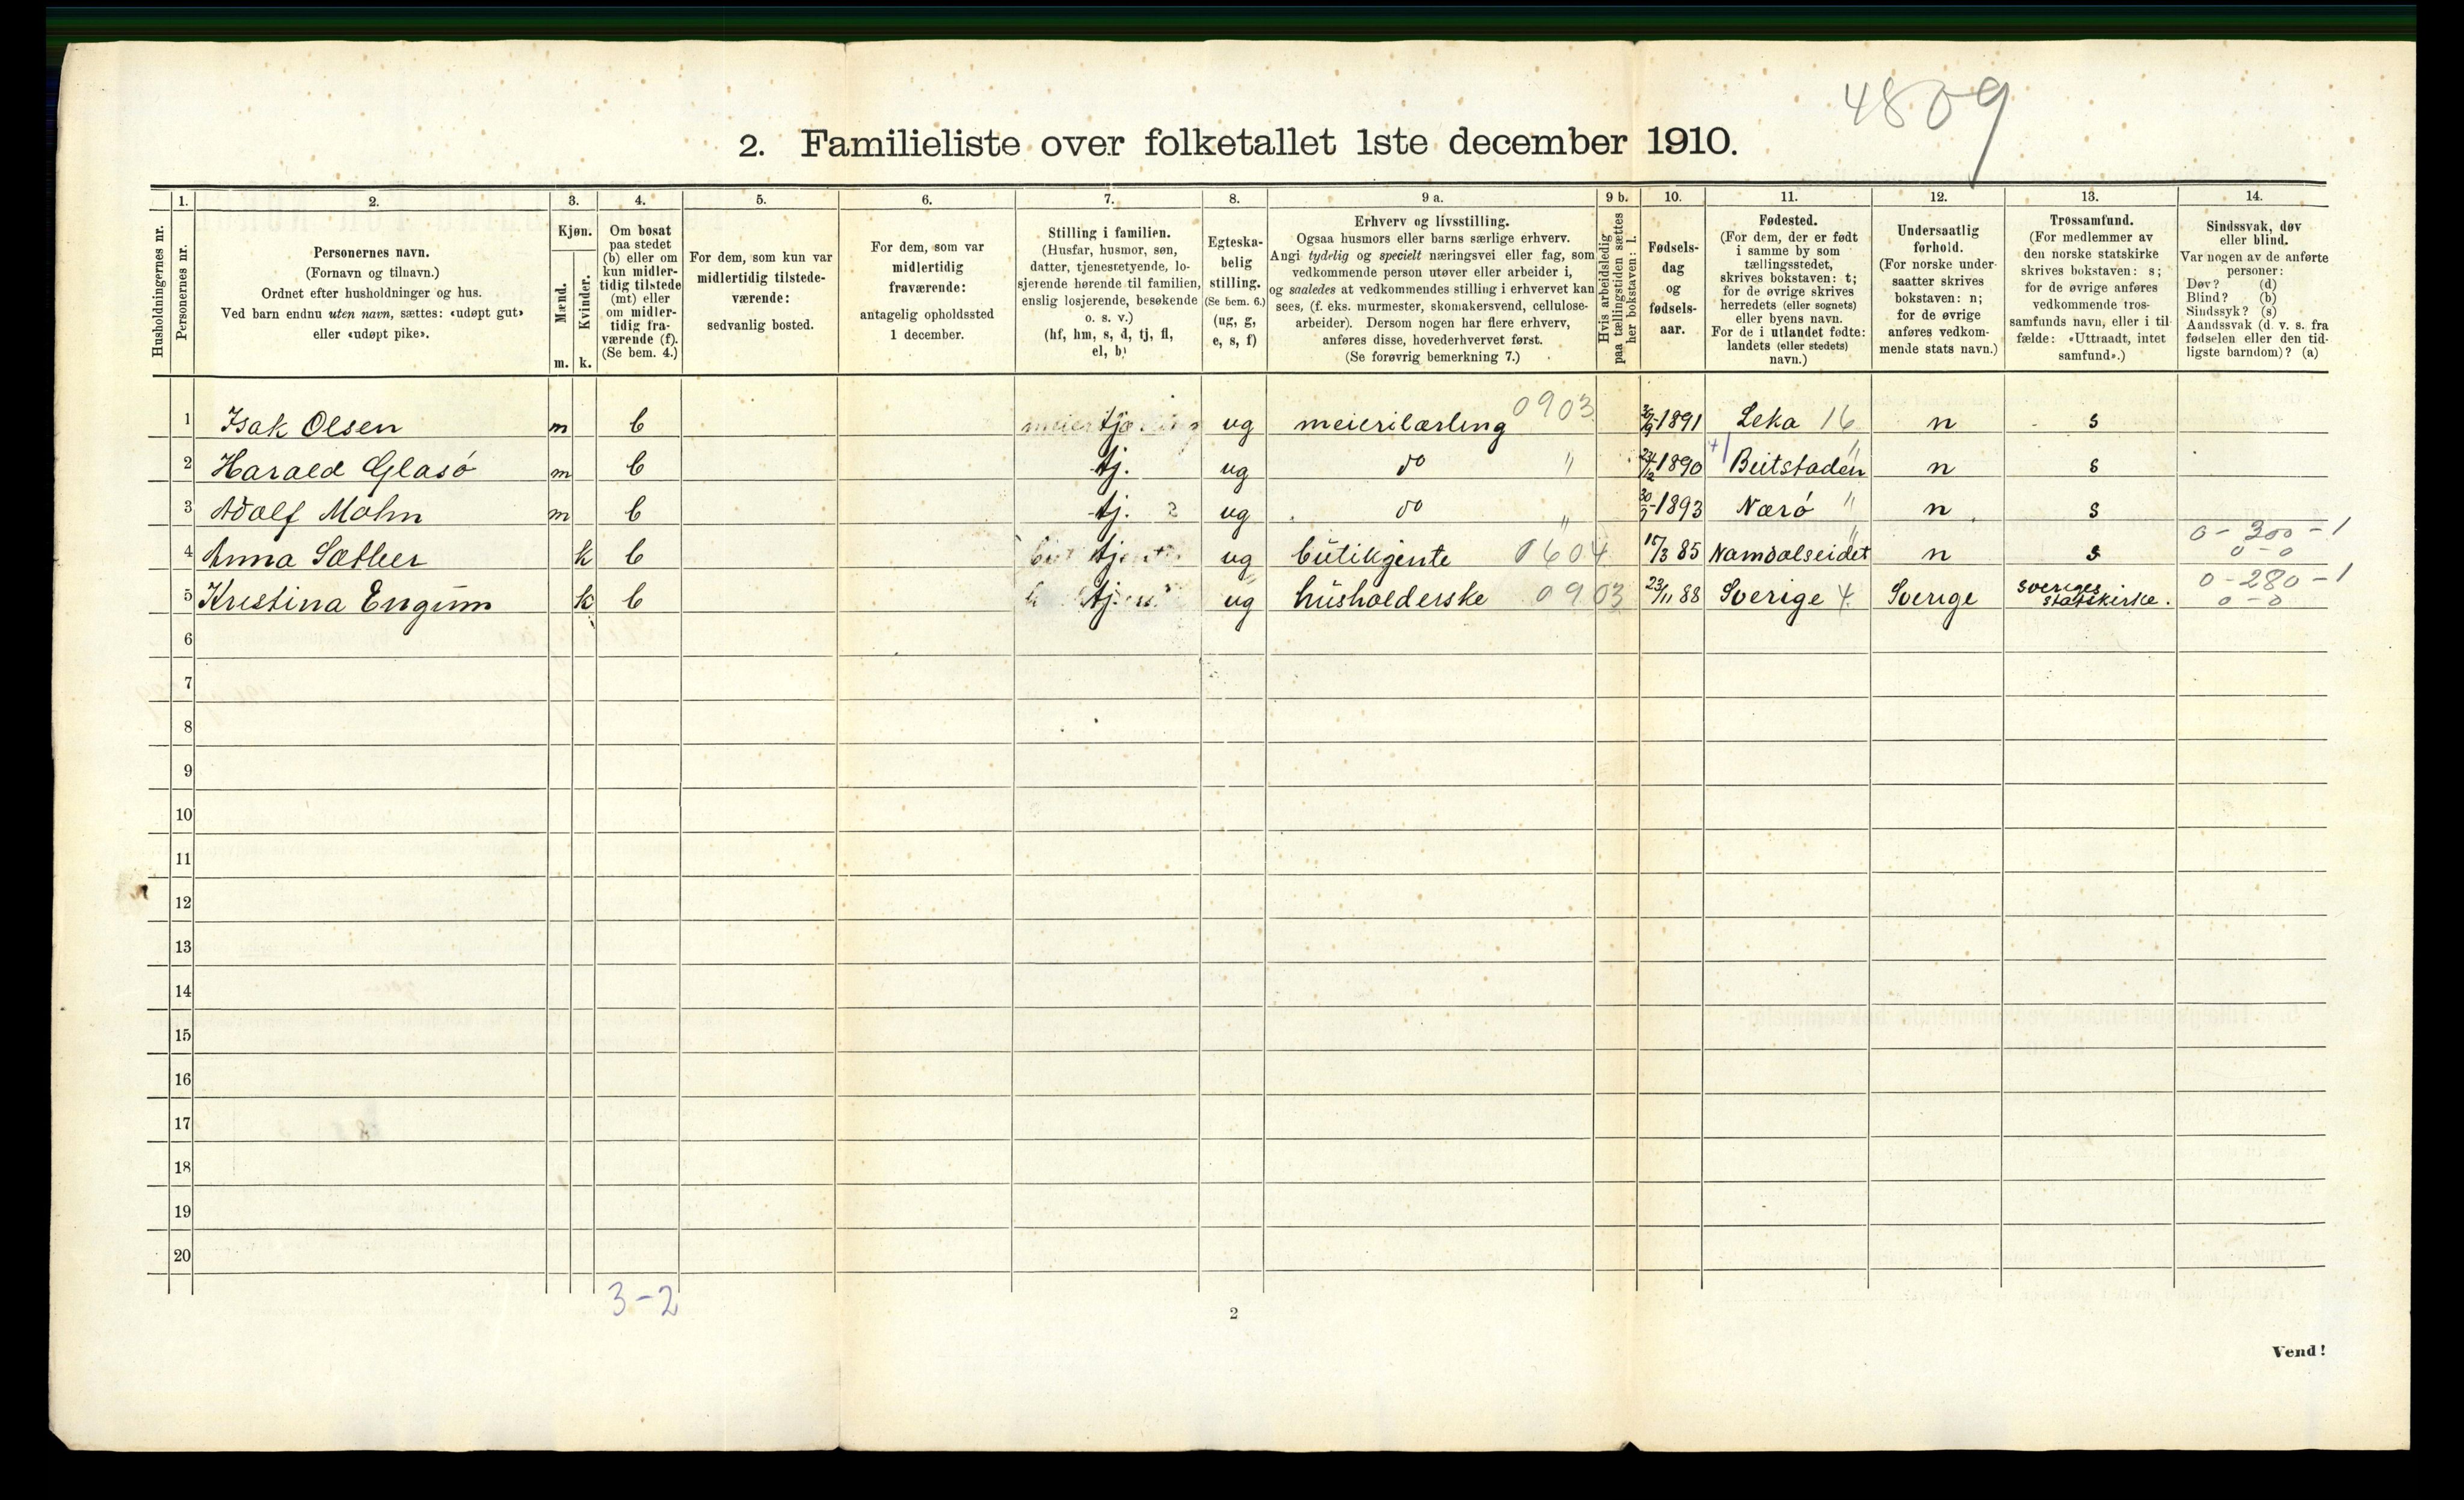 4809
2. Familieliste over folketallet 1ste december 1910.
1. 2. 3. 4. 5. 6. 7. 8. 9 a. 9 b. 10. 11. 12. 13. 14.
Husholdningernes nr.
Personernes nr.
Personernes navn.
(Fornavn og tilnavn.)
Ordnet efter husholdninger og hus.
Ved barn endnu uten navn, sættes: «udøpt gut»
eller «udøpt pike».
Kjøn.
Mænd.
m.
Kvinder.
k.
Om bosat
paa stedet
(b) eller om
kun midler-
tidig tilstede
(mt) eller
om midler-
tidig fra-
værende (f).
(Se bem. 4.)
For dem, som kun var
midlertidig tilstede-
værende:
sedvanlig bosted.
For dem, som var
midlertidig
fraværende:
antagelig opholdssted
1 december.
Stilling i familien.
(Husfar, husmor, søn,
datter, tjenestetyende, lo-
sjerende hørende til familien,
enslig losjerende, besøkende
o. s. v.)
(hf, hm, s, d, tj, fl,
el, b)
Egteska-
belig
stilling.
(Se bem. 6.)
(ug, g,
e, s, f)
Erhverv og livsstilling.
Ogsaa husmors eller barns særlige erhverv.
Angi tydelig og specielt næringsvei eller fag, som
vedkommende person utøver eller arbeider i,
og saaledes at vedkommendes stilling i erhvervet kan
sees, (f. eks. murmester, skomakersvend, cellulose-
arbeider). Dersom nogen har flere erhverv,
anføres disse, hovederhvervet først.
(Se forøvrig bemerkning 7.)
Hvis arbeidsledig
paa tællingstiden sættes
her bokstaven: l.
Fødsels-
dag
og
fødsels-
aar.
Fødested.
(For dem, der er født
i samme by som
tællingsstedet,
skrives bokstaven: t;
for de øvrige skrives
herredets (eller sognets)
eller byens navn.
For de i utlandet fødte:
landets (eller stedets)
navn.)
Undersaatlig
forhold.
(For norske under-
saatter skrives
bokstaven: n;
for de øvrige
anføres vedkom-
mende stats navn.)
Trossamfund.
(For medlemmer av
den norske statskirke
skrives bokstaven: s;
for de øvrige anføres
vedkommende tros-
samfunds navn, eller i til-
fælde: «Uttraadt, intet
samfund».)
Sindssvak, døv
eller blind.
Var nogen av de anførte
personer:
Døv? (d)
Blind? (b)
Sindssyk? (s)
Aandssvak (d. v. s. fra
fødselen eller den tid-
ligste barndom)? (a)
1 Isak Olsen m b tj ug meierilærling 0903 1891 Leka 16 n s
2 Harald Glasö m b tj. ug do " 1890 Beitstaden " n s
3 Adolf Mohn m b tj. ug do " 1893 Nærö " n s
0-300-1
4 Anna Sæther k b tj ug butikgente 0604 15/3 85 Namdalseidet " n s 0-0
0-280-1
5 Kristina Engum k b tj. ug husholderske 0903 23/11 88 Sverige 4 Sverige sveriges statskirke. 0-0
6
7
8
9
10
11
12
13
14
15
16
17
18
19
20
3-2
2
Vend!